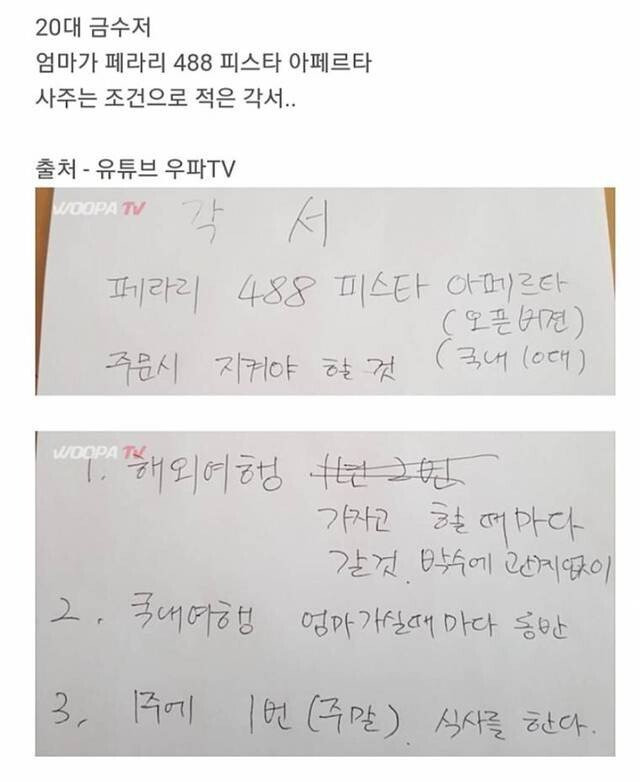 20대 금수저
엄마가 페라리 488 피스타 아페르타
사주는 조건으로 적은 각서..
출처 - 유튜브 우파TV
WOOPA TV
각 서
페라리 488 피스타 아페르타
(오픈버젼)
(국내 10대)
주문시 지켜야 할 것
WOOPA TV
1. 해외여행 1년 2번
가자고 할때마다
갈것. 박수에 관계없이
2. 국내여행 엄마가실때마다 동반
3. 1주에 1번 (주말). 식사를 한다.